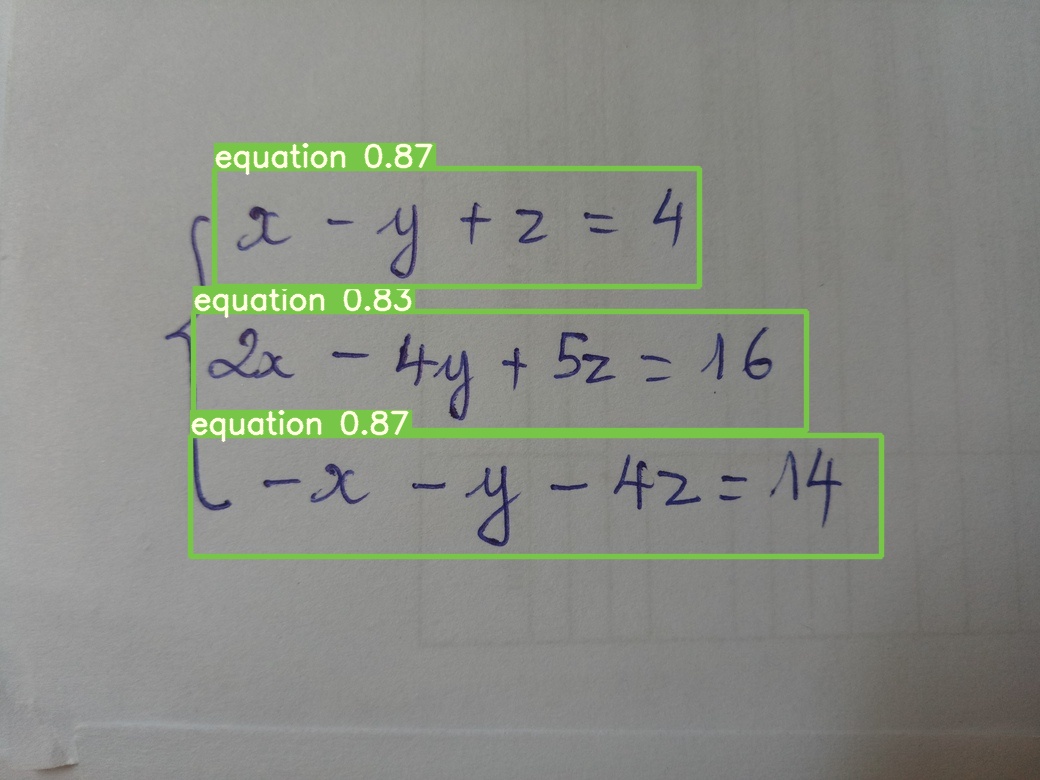 equation 0.87
x - y + z = 4
equation 0.83
2x - 4y + 5z = 16
equation 0.87
-x - y - 4z = 14